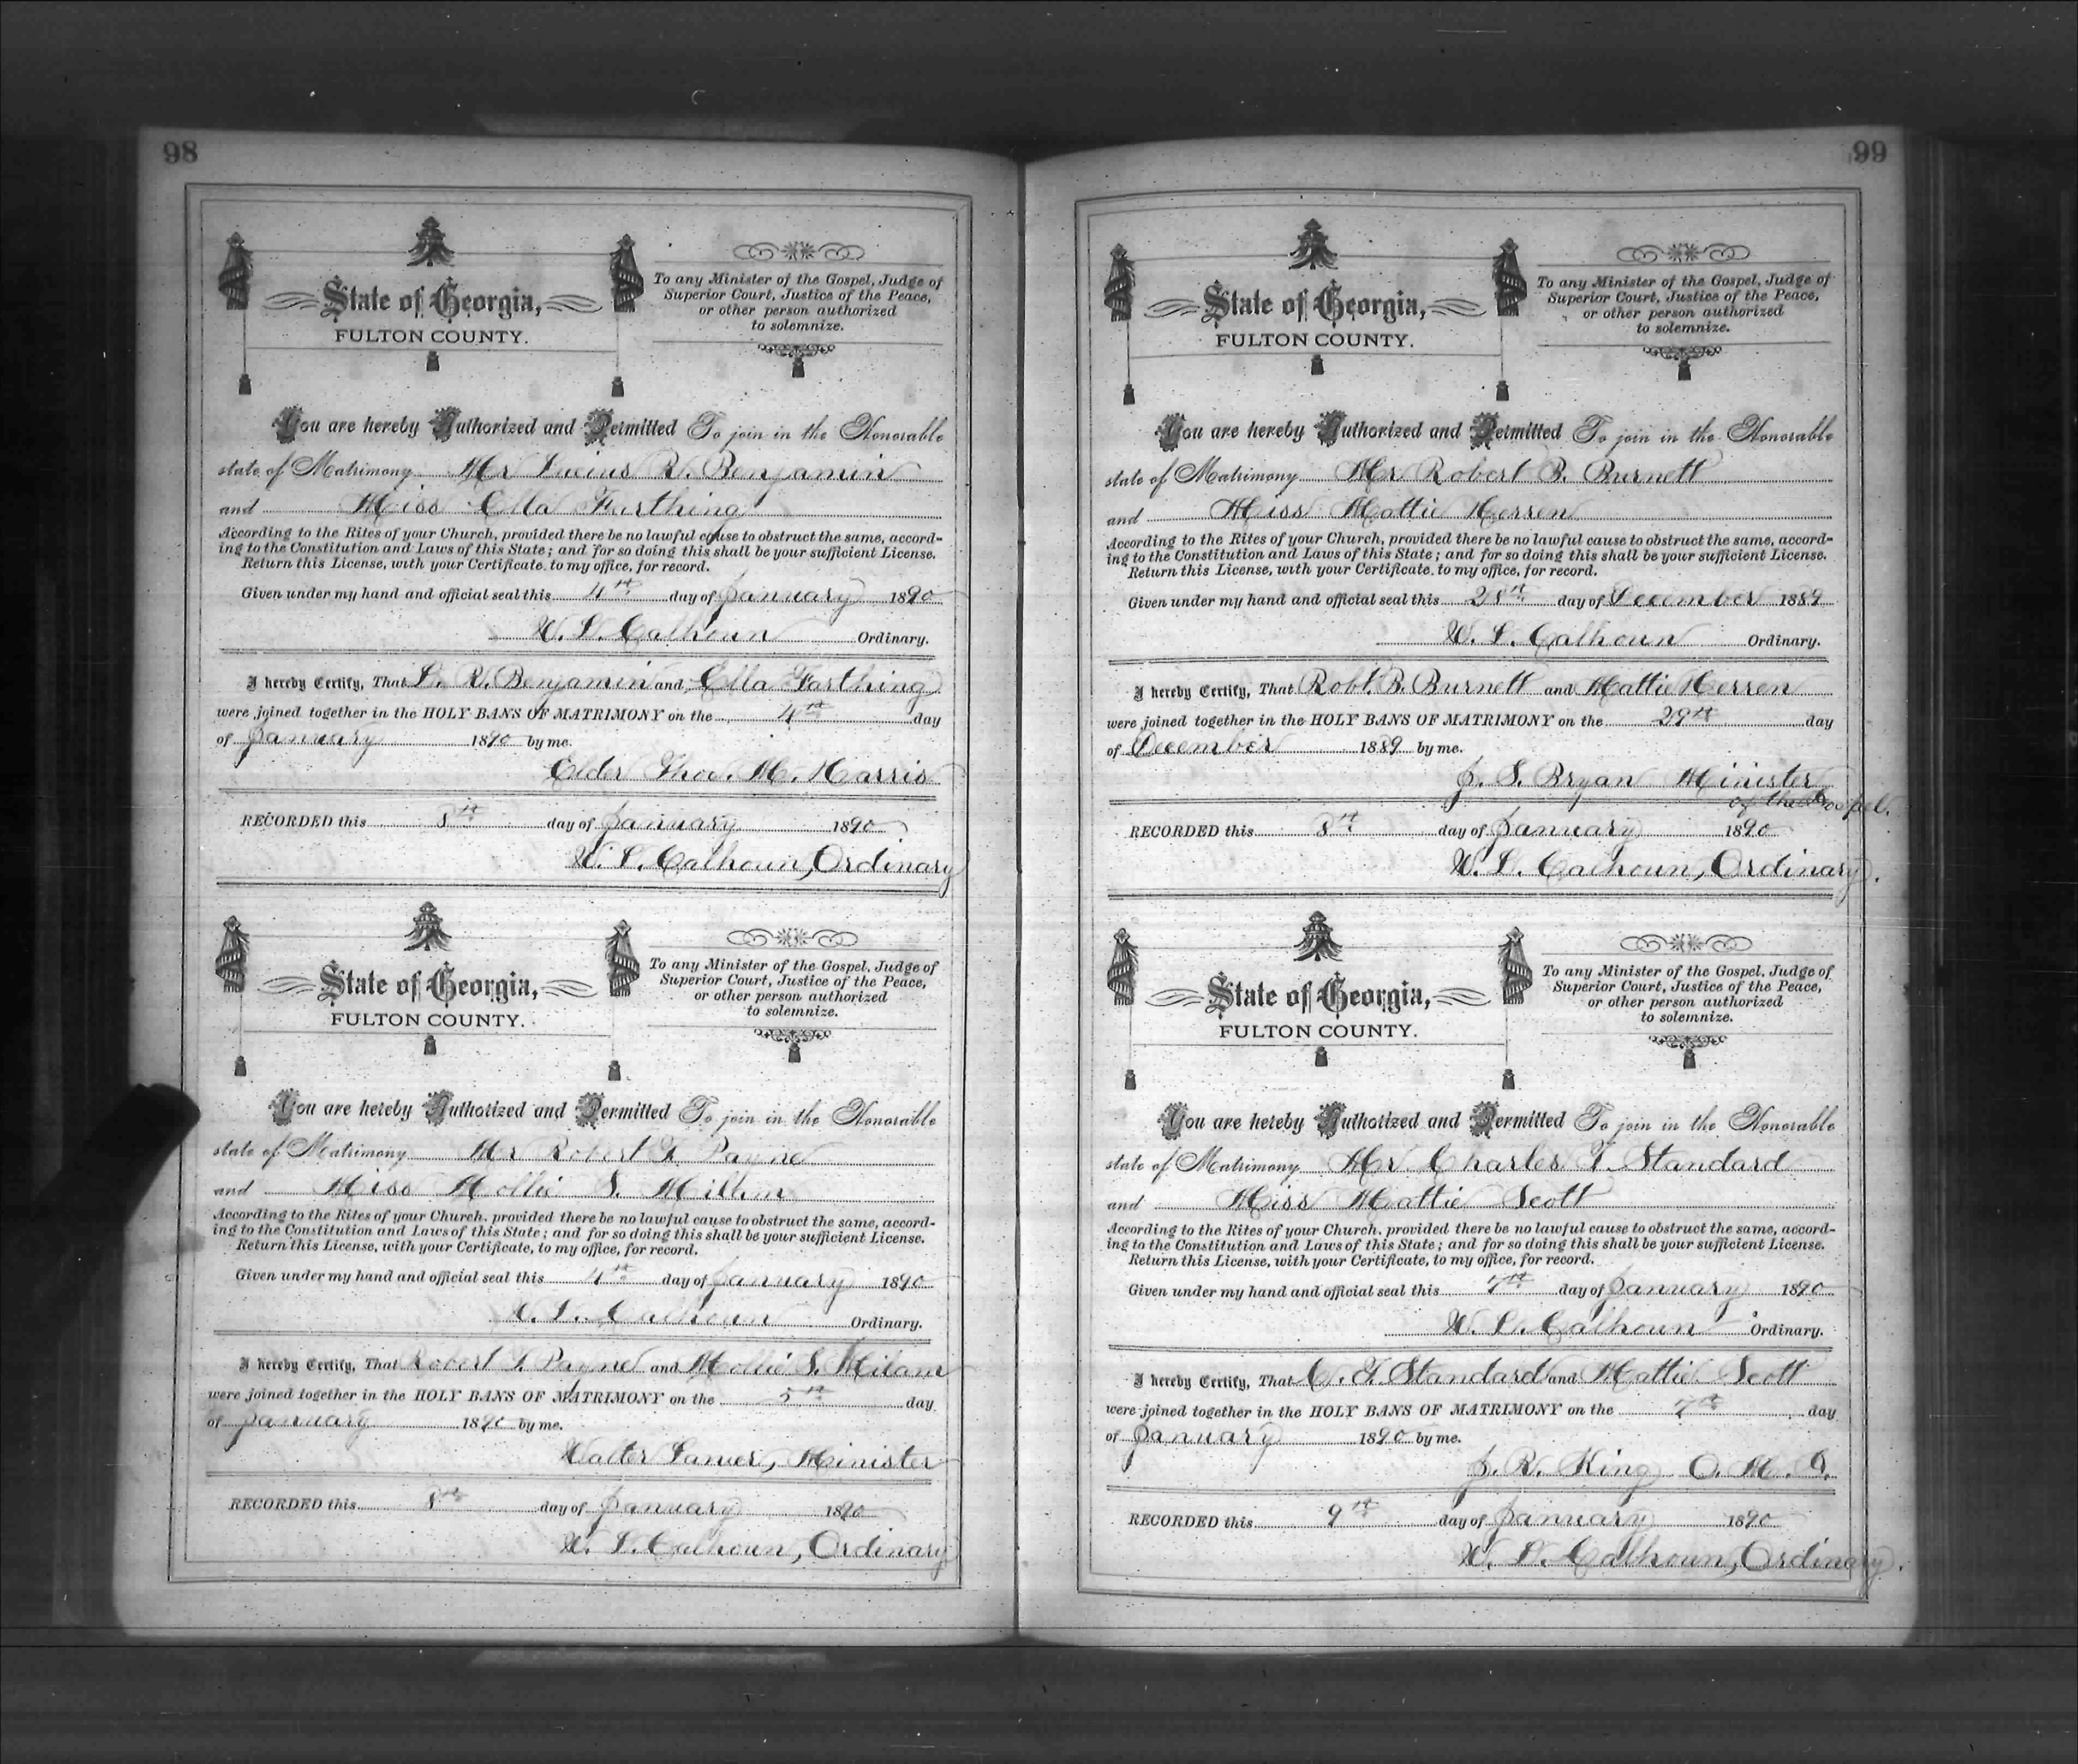 98
State of Georgia,
FULTON COUNTY.
To any Minister of the Gospel, Judge of
Superior Court, Justice of the Peace,
or other person authorized
to solemnize.
You are hereby Authorized and Permitted To join in the Honorable
state of Matrimony Mr Lucius R. Benjamin
and Miss Ella Farthing
According to the Rites of your Church, provided there be no lawful cause to obstruct the same, accord-
ing to the Constitution and Laws of this State; and for so doing this shall be your sufficient License.
Return this License, with your Certificate, to my office, for record.
Given under my hand and official seal this 4th day of January 1890
W. L. Calhoun Ordinary.
I hereby Certify, That L. R. Benjamin and Ella Farthing
were joined together in the HOLY BANS OF MATRIMONY on the 4th day
of January 1890 by me.
Elder Thos. M. Harris
RECORDED this 8th day of January 1890
W. L. Calhoun, Ordinary
State of Georgia,
FULTON COUNTY.
To any Minister of the Gospel, Judge of
Superior Court, Justice of the Peace,
or other person authorized
to solemnize.
You are hereby Authorized and Permitted To join in the Honorable
state of Matrimony Mr Robert F. Payne
and Miss Mollie S. Milam
According to the Rites of your Church, provided there be no lawful cause to obstruct the same, accord-
ing to the Constitution and Laws of this State; and for so doing this shall be your sufficient License.
Return this License, with your Certificate, to my office, for record.
Given under my hand and official seal this 4th day of January 1890
W. L. Calhoun Ordinary.
I hereby Certify, That Robert F. Payne and Mollie S. Milam
were joined together in the HOLY BANS OF MATRIMONY on the 5th day
of January 1890 by me.
Walter Lanier, Minister
RECORDED this 8th day of January 1890
W. L. Calhoun, Ordinary
99
State of Georgia,
FULTON COUNTY.
To any Minister of the Gospel, Judge of
Superior Court, Justice of the Peace,
or other person authorized
to solemnize.
You are hereby Authorized and Permitted To join in the Honorable
state of Matrimony Mr Robert B. Burnett
and Miss Mattie Herren
According to the Rites of your Church, provided there be no lawful cause to obstruct the same, accord-
ing to the Constitution and Laws of this State; and for so doing this shall be your sufficient License.
Return this License, with your Certificate, to my office, for record.
Given under my hand and official seal this 28th day of December 1889
W. L. Calhoun Ordinary.
I hereby Certify, That Robt. B. Burnett and Mattie Herren
were joined together in the HOLY BANS OF MATRIMONY on the 29th day
of December 1889 by me.
J. S. Bryan Minister
of the Gospel.
RECORDED this 8th day of January 1890
W. L. Calhoun, Ordinary.
State of Georgia,
FULTON COUNTY.
To any Minister of the Gospel, Judge of
Superior Court, Justice of the Peace,
or other person authorized
to solemnize.
You are hereby Authorized and Permitted To join in the Honorable
state of Matrimony Mr Charles T. Standard
and Miss Mattie Scott
According to the Rites of your Church, provided there be no lawful cause to obstruct the same, accord-
ing to the Constitution and Laws of this State; and for so doing this shall be your sufficient License.
Return this License, with your Certificate, to my office, for record.
Given under my hand and official seal this 7th day of January 1890
W. L. Calhoun Ordinary.
I hereby Certify, That C. T. Standard and Mattie Scott
were joined together in the HOLY BANS OF MATRIMONY on the 7th day
of January 1890 by me.
J. R. King O. M. G.
RECORDED this 9th day of January 1890
W. L. Calhoun, Ordinary.